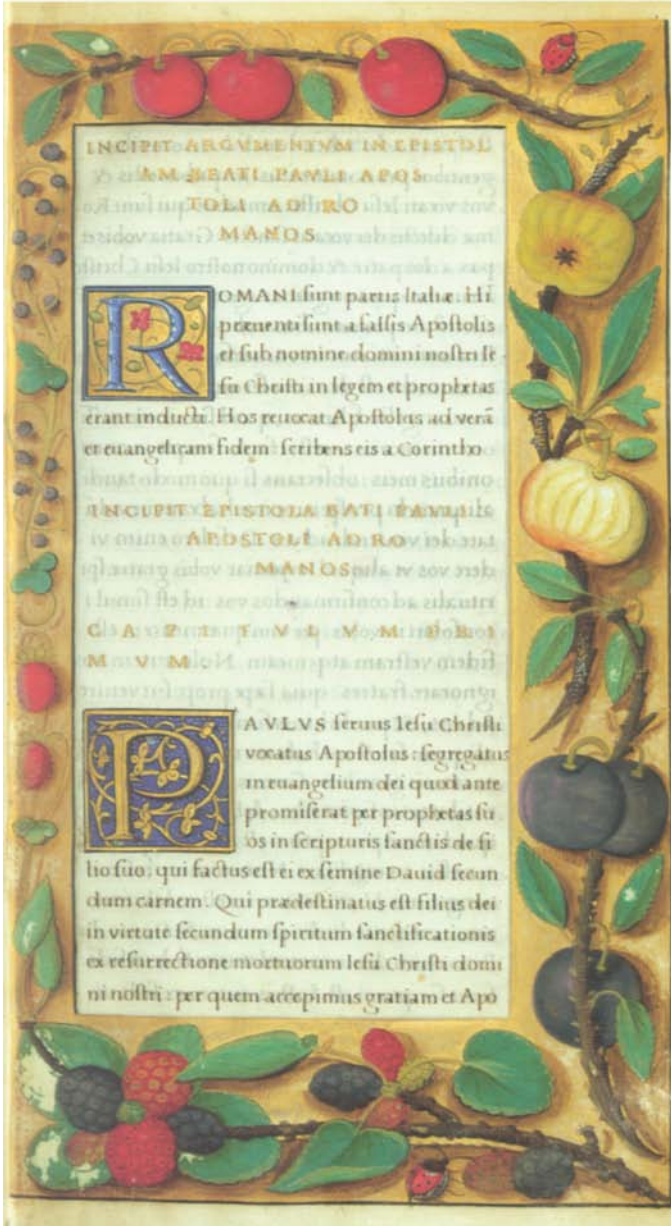 INCIPIT ARGVMENTVM IN EPISTOL
AM BEATI PAVLI APOS
TOLI AD RO
MANOS
ROMANI sunt partis Italiæ. Hi
præuenti sunt a falsis Apostolis
et sub nomine domini nostri Ie
su Christi in legem et prophetas
erant inducti. Hos reuocat Apostolus ad verā
et euangelicam fidem scribens eis a Corintho
INCIPIT EPISTOLA BATI PAVLI
APOSTOLI AD RO
MANOS
CAPITVLVM PRI
MVM.
PAVLVS seruus Iesu Christi
vocatus Apostolus: segregatus
in euangelium dei quod ante
promiserat per prophetas su
os in scripturis sanctis de fi
lio suo. qui factus est ei ex semine Dauid secun
dum carnem. Qui prædestinatus est filius dei
in virtute secundum spiritum sanctificationis
ex resurrectione mortuorum Iesu Christi domi
ni nostri: per quem accepimus gratiam et Apo